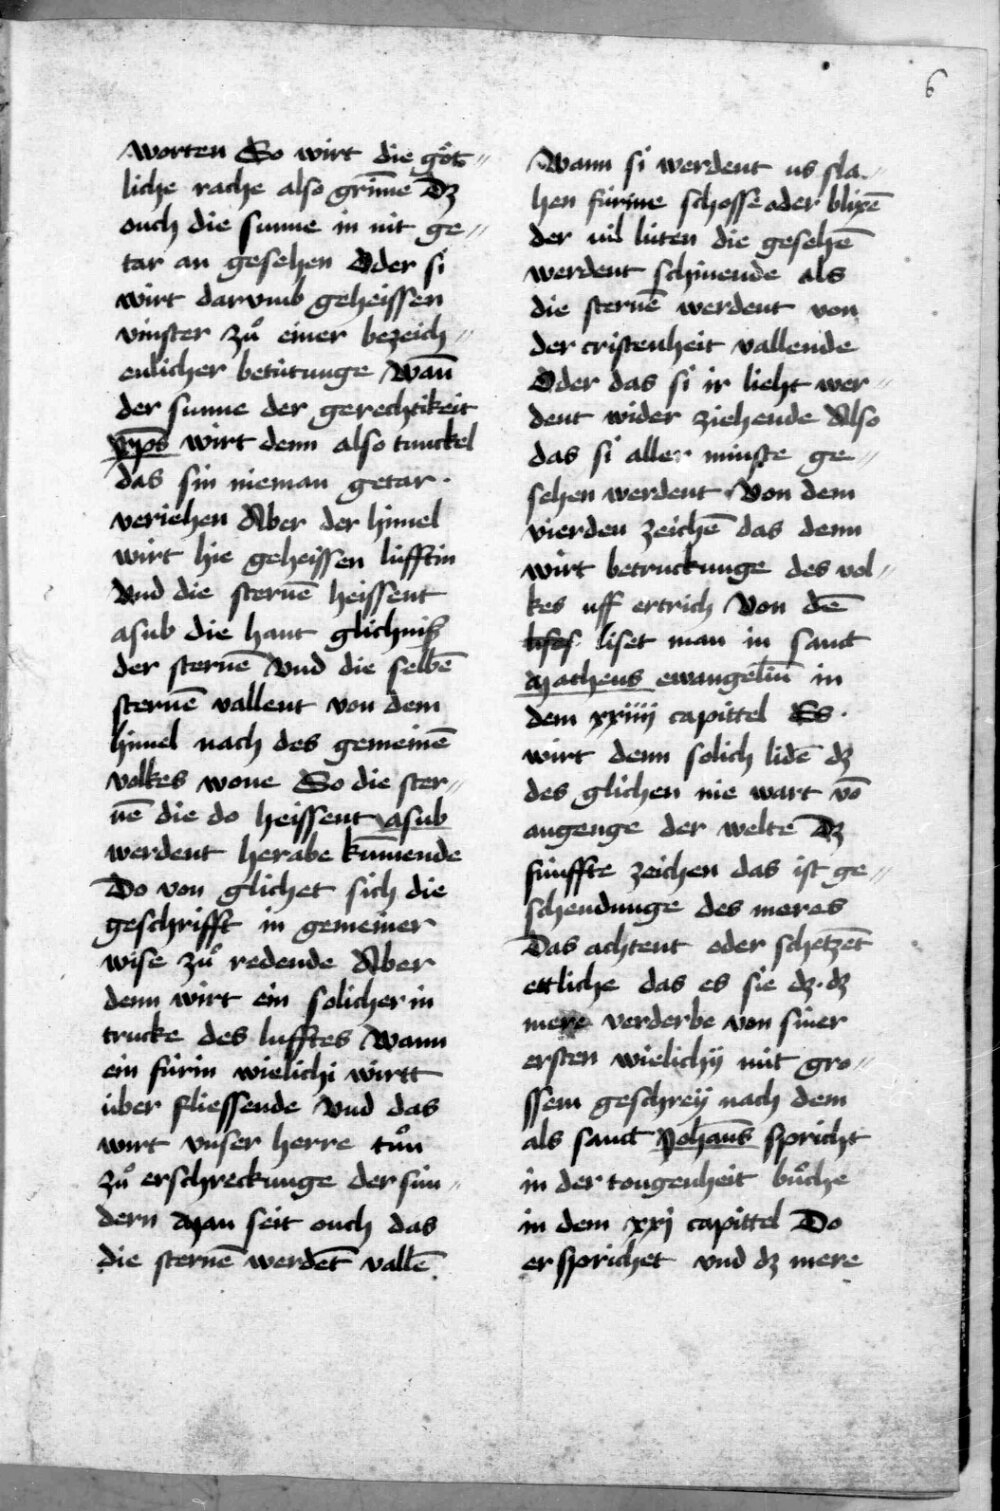 6
worten So wirt die göt〃
liche rache also grim̄e Dʒ
ouch die sunne in nit ge〃
tar an gesehen Oder si
wirt darvmb geheissen
vinster zů einer bezeich〃
enlicher betütunge Wan̄
der sunne der gerechtikeit
xp̄s wirt denn also tunckel
das sin nieman getar ·
veriehen Aber der himel
wirt hie geheissen lüfftin
Vnd die sternē heissent
asub die hant glichniß
der sternē Vnd die selbē
sternē vallent von dem
himel nach des gemeinē
volkes wone So die ster〃
nē die do heissent asub
werdent herabe kum̄ende
Do von glichet sich die
geschrifft in gemeiner
wise zů redende Aber
denn wirt ein solicher in
trucke des lufftes Wann
ein fürin wielichi wirtt
über fliessende Vnd das
wirt vnser herre tůn
zů erschreckunge der sün〃
dern Man seit ouch das
die sternē werdēt vallē
Wann si werdent us sla〃
hen fürine schosse oder blixē
der vil lüten die gesehē
werdent schinende als
die sternē werdent von
der cristenheit vallende
Oder das si ir lieht wer〃
dent wider ziehende Also
das si aller minste ge〃
sehen werdent Von dem
vierden zeichē das denn
wirt betruckunge des vol〃
kes uff ertrich Von dē
liset man in sanct
Matheus ewangeliū in
dem xxiiij capittel Es ·
wirt denn solich lidē dʒ
des glichen nie wart vō
angenge der welte Dʒ
fünffte zeichen das ist ge〃
schendunge des meres
Das achtent oder schetzēt
ettliche das es sie dʒ · dʒ
mere verderbe von siner
ersten wielichij mit gro〃
ssem geschreÿ nach dem
als sanct Johan̄s spricht
in der tougenheit bůche
in dem xxj capittel Do
er sprichet vnd dʒ mere